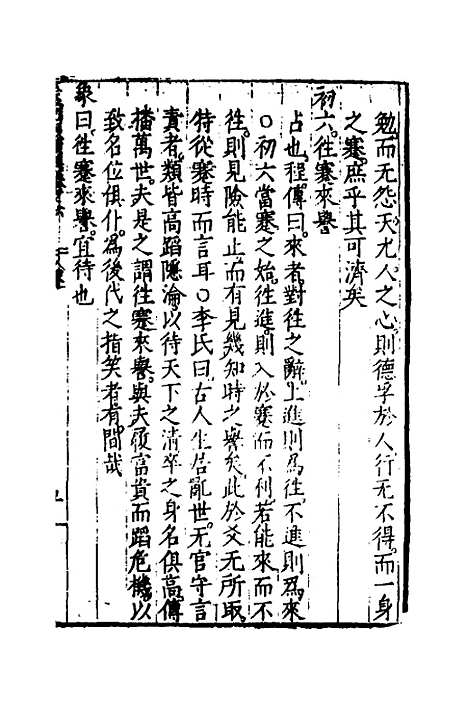 勉而无怨天尤人之心則德孚於人行无不得而一身
之蹇庶乎其可濟矣
初六往蹇來譽
占也程傳曰來者對往之辭上進則為往不進則爲來
○初六當蹇之始往進則入於蹇而不利若能來而不
往則見險能止而有見幾知時之譽矣此於爻无所取
特從蹇時而言耳○李氏曰古人生居亂世无官守言
責者類皆高蹈隱淪以待天下之清卒之身名俱高傳
播萬世夫是之謂往蹇來譽與夫履富貴而蹈危機以
致名位俱仆為後代之指笑者有間哉
象曰往蹇來譽宜待也